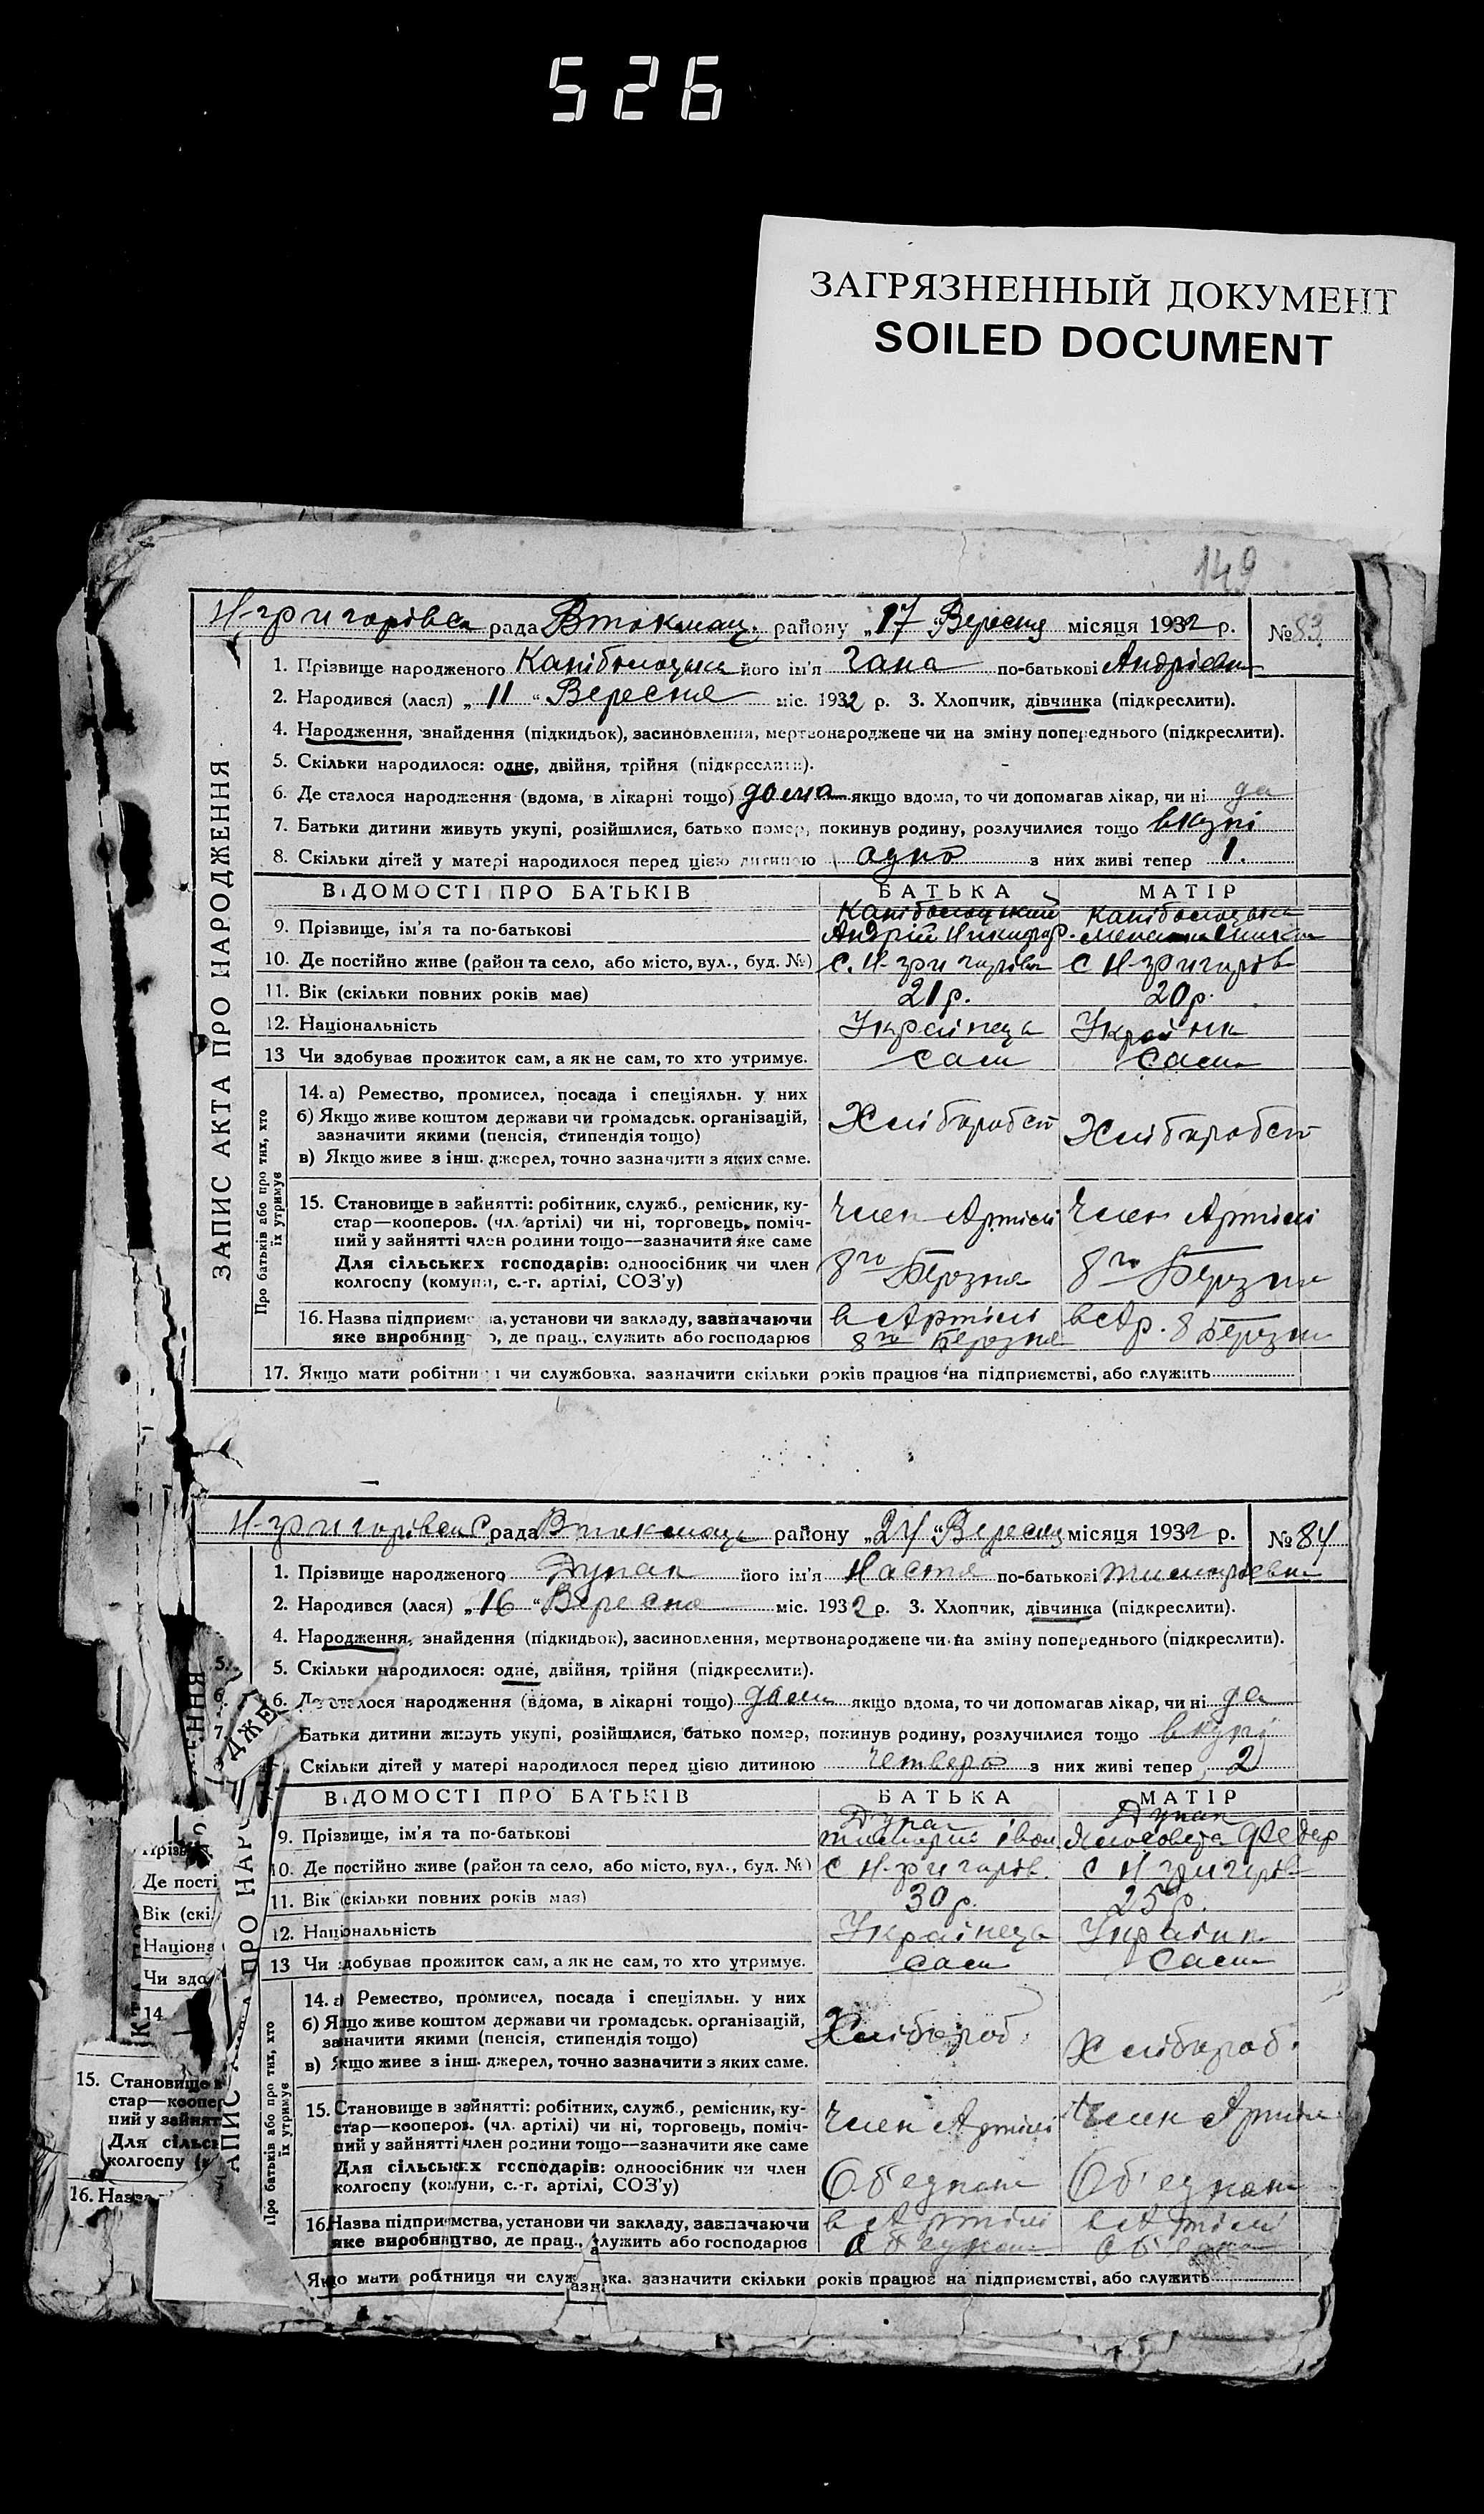 526
ЗАГРЯЗНЕННЫЙ ДОКУМЕНТ
SOILED DOCUMENT
149
ЗАПИС АКТА ПРО НАРОДЖЕННЯ
Н-григорівса рада Втокмац. району „17“ Вересня місяця 1932 р. № 83
1. Прізвище народженого його ім'я Гана по-батькові Андрієвн
2. Народився (лася) „11“ Вересня міс. 1932 р. 3. Хлопчик, дівчинка (підкреслити).
4. Народження, знайдення (підкидьок), засиновлення, мертвонароджене чи на зміну попереднього (підкреслити).
5. Скільки народилося: одне, двійня, трійня (підкреслити).
6. Де сталося народження (вдома, в лікарні тощо) дома якщо вдома, то чи допомагав лікар, чи ні да
7. Батьки дитини живуть укупі, розійшлися, батько помер, покинув родину, розлучилися тощо вкупі
8. Скільки дітей у матері народилося перед цією дитиною одно з них живі тепер 1.
ВІДОМОСТІ ПРО БАТЬКІВ БАТЬКА МАТІР
9. Прізвище, ім'я та по-батькові Андрій
10. Де постійно живе (район та село, або місто, вул., буд. №) с. Н-григорівк с Н-григорів
11. Вік (скільки повних років має) 21 р. 20 р.
12. Національність Українець Українк
13 Чи здобував прожиток сам, а як не сам, то хто утримує. сам сама
Про батьків або про тих, хто їх утримує
14. а) Ремество, промисел, посада і спеціяльн. у них
б) Якщо живе коштом держави чи громадськ. організацій,
зазначити якими (пенсія, стипендія тощо) Хліборобст Хліборобст
в) Якщо живе з інш. джерел, точно зазначити з яких саме.
15. Становище в зайнятті: робітник, служб., ремісник, ку-
стар—кооперов. (чл. артілі) чи ні, торговець, поміч- Член Артілі Член Артілі
ний у зайнятті член родини тощо—зазначити яке саме
Для сільських господарів: одноосібник чи член 8го Березня 8го Березня
колгоспу (комуни, с.-г. артілі, СОЗ'у)
16. Назва підприємства, установи чи закладу, зазначаючи в Артілі в Ар. 8 Березн
яке виробництво, де прац., служить або господарює 8го Березня
17. Якщо мати робітниця чи службовка, зазначити скільки років працює на підприємстві, або служить
Н-григорівса С рада Втокмац району „24“ Вересня місяця 1932 р. № 84
1. Прізвище народженого Дупак його ім'я Настя по-батькові
2. Народився (лася) „16“ Вересня міс. 1932 р. 3. Хлопчик, дівчинка (підкреслити).
4. Народження, знайдення (підкидьок), засиновлення, мертвонароджене чи на зміну попереднього (підкреслити).
5. Скільки народилося: одне, двійня, трійня (підкреслити).
6. Де сталося народження (вдома, в лікарні тощо) дома якщо вдома, то чи допомагав лікар, чи ні да
Батьки дитини живуть укупі, розійшлися, батько помер, покинув родину, розлучилися тощо вкупі
Скільки дітей у матері народилося перед цією дитиною четверо з них живі тепер 2
ВІДОМОСТІ ПРО БАТЬКІВ БАТЬКА МАТІР
Дупак Дупак
9. Прізвище, ім'я та по-батькові іван Федор
10. Де постійно живе (район та село, або місто, вул., буд. №) с Н-григорів. с Н григорів
11. Вік (скільки повних років має) 30 р. 25 р.
12. Національність Українець Українк
13 Чи здобував прожиток сам, а як не сам, то хто утримує. сам сама
Про батьків або про тих, хто їх утримує
14. а) Ремество, промисел, посада і спеціяльн. у них
б) Якщо живе коштом держави чи громадськ. організацій,
зазначити якими (пенсія, стипендія тощо) Хлібороб. Хлібороб.
в) Якщо живе з інш. джерел, точно зазначити з яких саме.
15. Становище в зайнятті: робітник, служб., ремісник, ку-
стар—кооперов. (чл. артілі) чи ні, торговець, поміч- Член Артілі Член Артіл
ний у зайнятті член родини тощо—зазначити яке саме
Для сільських господарів: одноосібник чи член Об'еднан Об'еднан
колгоспу (комуни, с.-г. артілі, СОЗ'у)
16. Назва підприємства, установи чи закладу, зазначаючи в Артілі в Артілі
яке виробництво, де прац., служить або господарює
Якщо мати робітниця чи службовка, зазначити скільки років працює на підприємстві, або служить
5.
6.
7.
ДЖЕ
Де пості
Вік (скі
Націона
Чи здо
14
15. Становище в
стар—коопер
ний у зайнят
Для сільсь
колгоспу
16. Назва